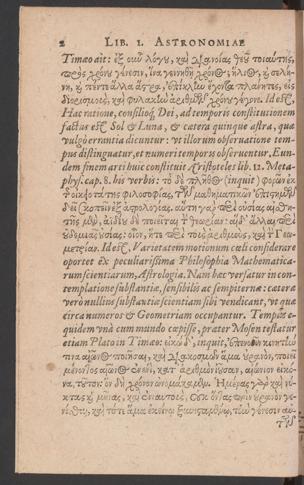 2 LIB. I. ASTRONOMIAE
Timæo ait: ἐξ οὖν λόγου, καὶ διανοίας θεοῦ τοιαύτης,
πρὸς χρόνου γένεσιν, ἵνα γεννηθῇ χρόνος, ἥλιος, κỳ σελή-
νη, κỳ πέντε ἄλλα ἄστρα, ἐπίκλην ἔχοντα πλανητὰ, εἰς
διορισμὸν, καὶ φυλακὴν ἀριθμῶν χρόνου γέγονε. Id est,
Hac ratione, consilioq́; Dei, ad temporis constitutionem
factus est Sol & Luna, & cætera quinque astra, quæ
vulgò errantia dicuntur: vt illorum obseruatione tem-
pus distinguatur, et numeri temporis obseruentur. Eun-
dem finem arti huic constituit Aristoteles lib. 12. Meta-
phys. cap. 8. his verbis: τὸ δὲ πλῆθος (inquit) φορῶν ἐκ
τῆς οἰκειοτάτης φιλοσοφίας, τῶν μαθηματικῶν ἐπιστημῶν
δεῖ σκοπεῖν ἐξ ἀστρολογίας. αὕτη γὰρ περὶ οὐσίας αἰσθη-
τῆς μὲν, ἀϊδίου δὲ ποιεῖται τὴν θεωρίαν: αἱ δ' ἄλλαι περὶ
οὐδεμιᾶς οὐσίας: οἷον, ἥτε περὶ τοὺς ἀριθμοὺς, καὶ τὴν Γεω-
μετρίαν. Id est, Varietatem motionum cœli considerare
oportet ex peculiarissima Philosophia Mathematica-
rum scientiarum, Astrologia. Nam hæc versatur in con-
templatione substantiæ, sensibilis ac sempiternæ: cæteræ
verò nullius substantiæ scientiam sibi vendicant, vt quæ
circa numeros & Geometriam occupantur. Tempus e-
quidem vnà cum mundo cœpisse, præter Mosen testatur
etiam Plato in Timæo: εἰκὼ δ', inquit, ἐπενόει κινητὸν
τινα αἰῶνος ποιῆσαι, καὶ διακοσμῶν ἅμα οὐρανὸν, ποιεῖ
μένοντος αἰῶνος ἐν ἑνὶ, κατ' ἀριθμὸν ἰοῦσαν, αἰώνιον εἰκό-
να, τοῦτον ὃν δὴ χρόνον ὠνομάκαμεν. Ἡμέρας γὰρ καὶ νύ-
κτας κỳ μῆνας, καὶ ἐνιαυτοὺς, οὐκ ὄντας πρὶν οὐρανὸν γε-
νέσθαι, καὶ τότε ἅμα ἐκείνῳ ξυνισταμένῳ, τὴν γένεσιν αὐ-
τῶν